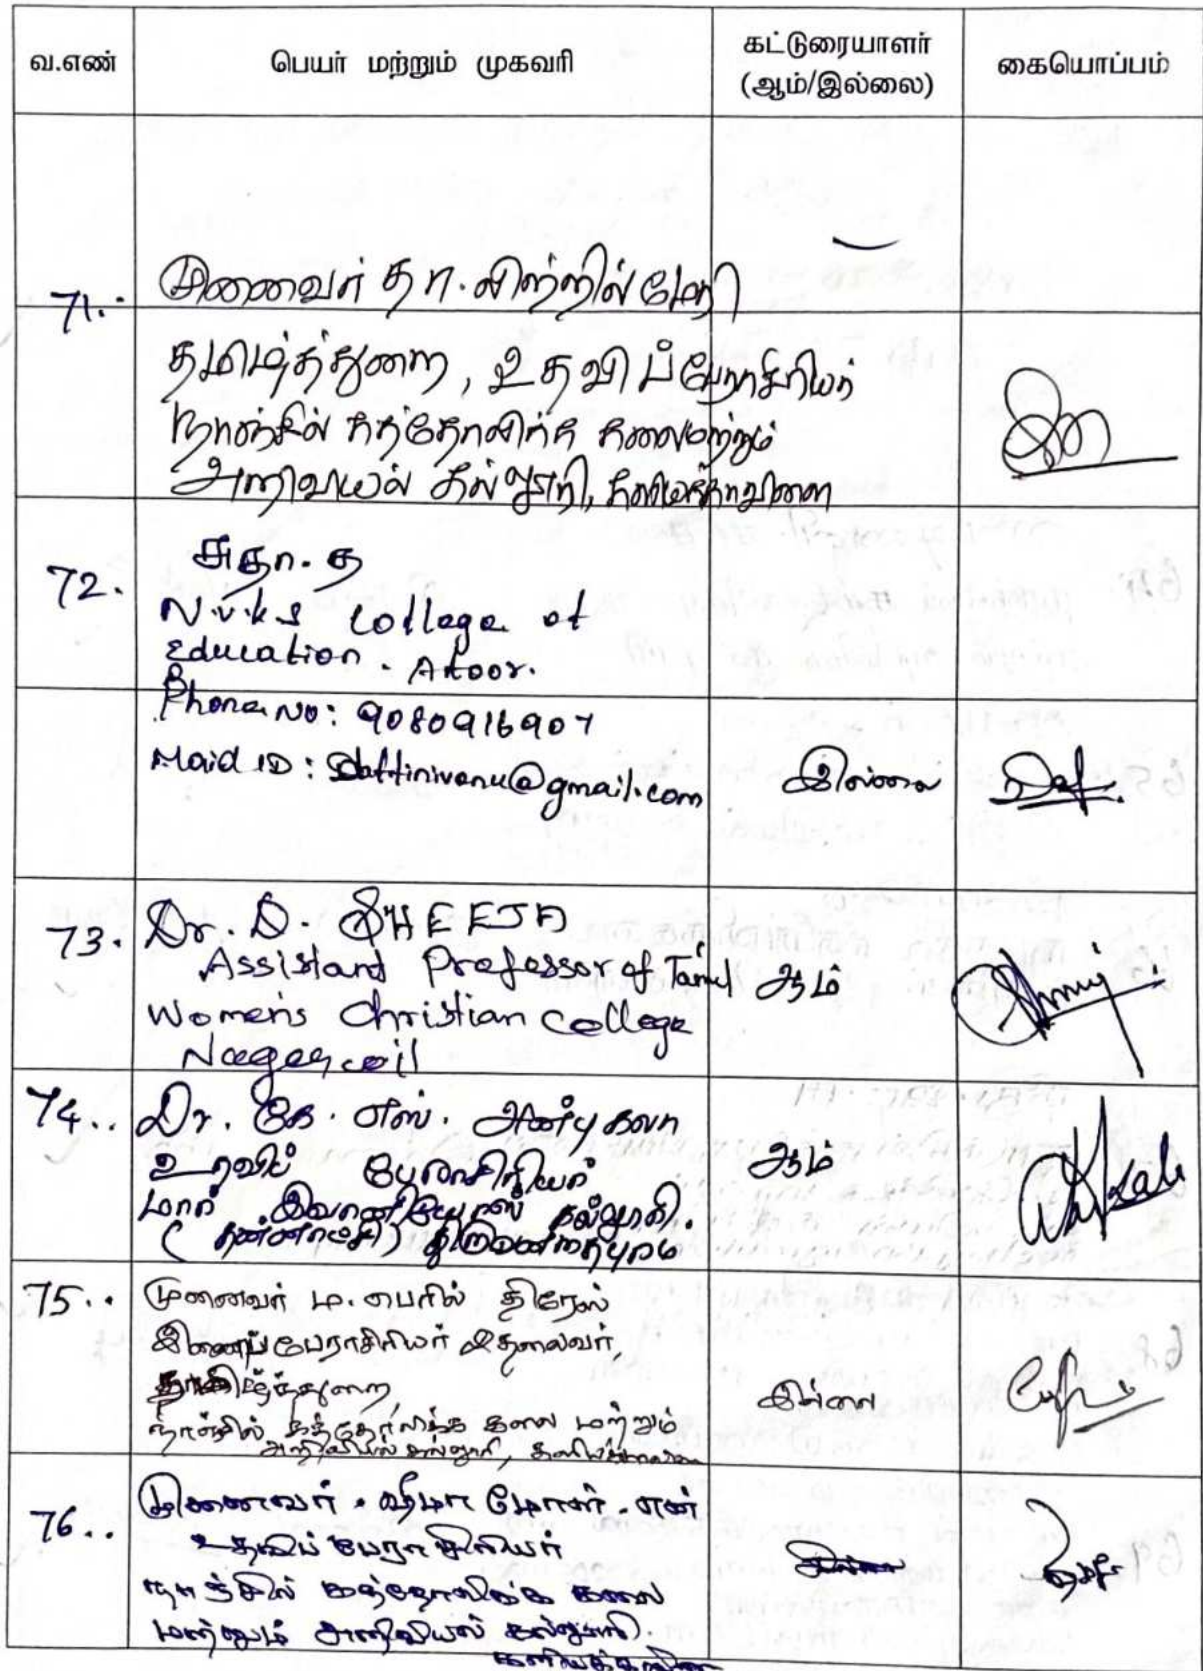 வ.எண் பெயர் மற்றும் முகவரி கட்டுரையாளர் (ஆம்/இல்லை) கையொப்பம்
71. முனைவர் தா. விற்றில் மேரி
தமிழ்த்துறை, உதவிப்பேராசிரியர்
நாஞ்சில் கத்தோலிக்க கலைமற்றும்
அறிவியல் கல்லூரி, களியக்காவிளை
72. சுதா. த
N.V.K.S College of
Education. Attoor.
Phone No: 9080916907
Maid ID: @gmail.com இல்லை
73. Dr. D. SHEEJA
Assistant Professor of Tamil ஆம்
Women's Christian College
Nagercoil
74.. Dr. கே. எஸ். அன்பு கலா
உதவிப் பேராசிரியர் ஆம்
மார் இவானியோஸ் கல்லூரி.
(தன்னாட்சி) திருவனந்தபுரம்
75.. முனைவர் ம. பெரில் திரேஸ்
இணைப்பேராசிரியர் & தலைவர்,
தமிழ்த்துறை, இல்லை
நாஞ்சில் கத்தோலிக்க கலை மற்றும்
அறிவியல் கல்லூரி, களியக்காவிளை
76.. முனைவர். ஷீமா மோள். என்
உதவிப் பேராசிரியர்
நாஞ்சில் கத்தோலிக்க கலை
மற்றும் அறிவியல் கல்லூரி.
களியக்காவிளை